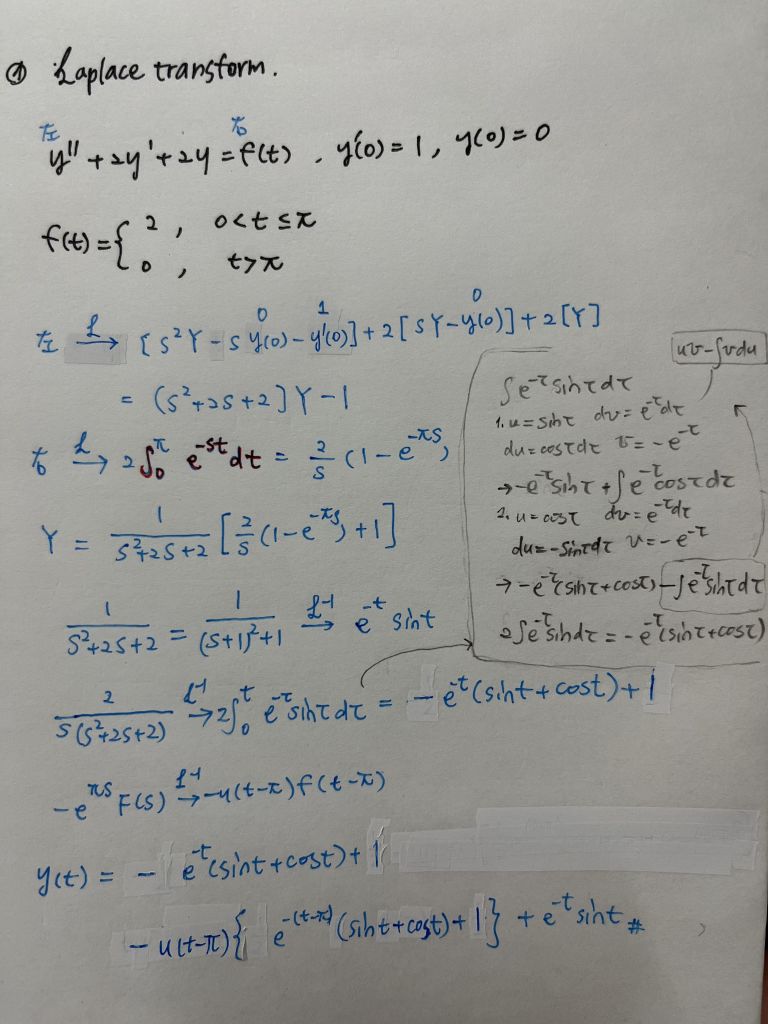 ① Laplace transform.
左 右
y'' + 2y' + 2y = f(t) . y'(0) = 1, y(0) = 0
f(t) = { 2 , 0 < t ≤ π
0 , t > π
0 1 0
左 ℒ→ [s²Y - s y(0) - y'(0)] + 2[sY - y(0)] + 2[Y]
= (s²+2s+2]Y - 1
右 ℒ→ 2∫₀^π e^{-st} dt = 2/s (1 - e^{-πs})
Y = 1/(s²+2s+2) [2/s (1 - e^{-πs}) + 1]
1/(s²+2s+2) = 1/((s+1)²+1) ℒ⁻¹→ e^{-t} sint
2/(s(s²+2s+2)) ℒ⁻¹→ 2∫₀^t e^{-τ} sinτ dτ = - e^{-t}(sint + cost) + 1
-e^{πs} F(s) ℒ⁻¹→ -u(t-π) f(t-π)
y(t) = - e^{-t}(sint + cost) + 1
- u(t-π){ e^{-(t-π)} (sint + cost) + 1} + e^{-t} sint #
uv - ∫vdu
∫e^{-τ} sinτ dτ
1. u = sinτ dv = e^{-τ}dτ
du = cosτdτ v = -e^{-τ}
→ -e^{-τ}sinτ + ∫e^{-τ}cosτdτ
2. u = cosτ dv = e^{-τ}dτ
du = -sinτdτ v = -e^{-τ}
→ -e^{-τ}(sinτ + cosτ) - ∫e^{-τ}sinτdτ
2∫e^{-τ}sindτ = -e^{-τ}(sinτ + cosτ)